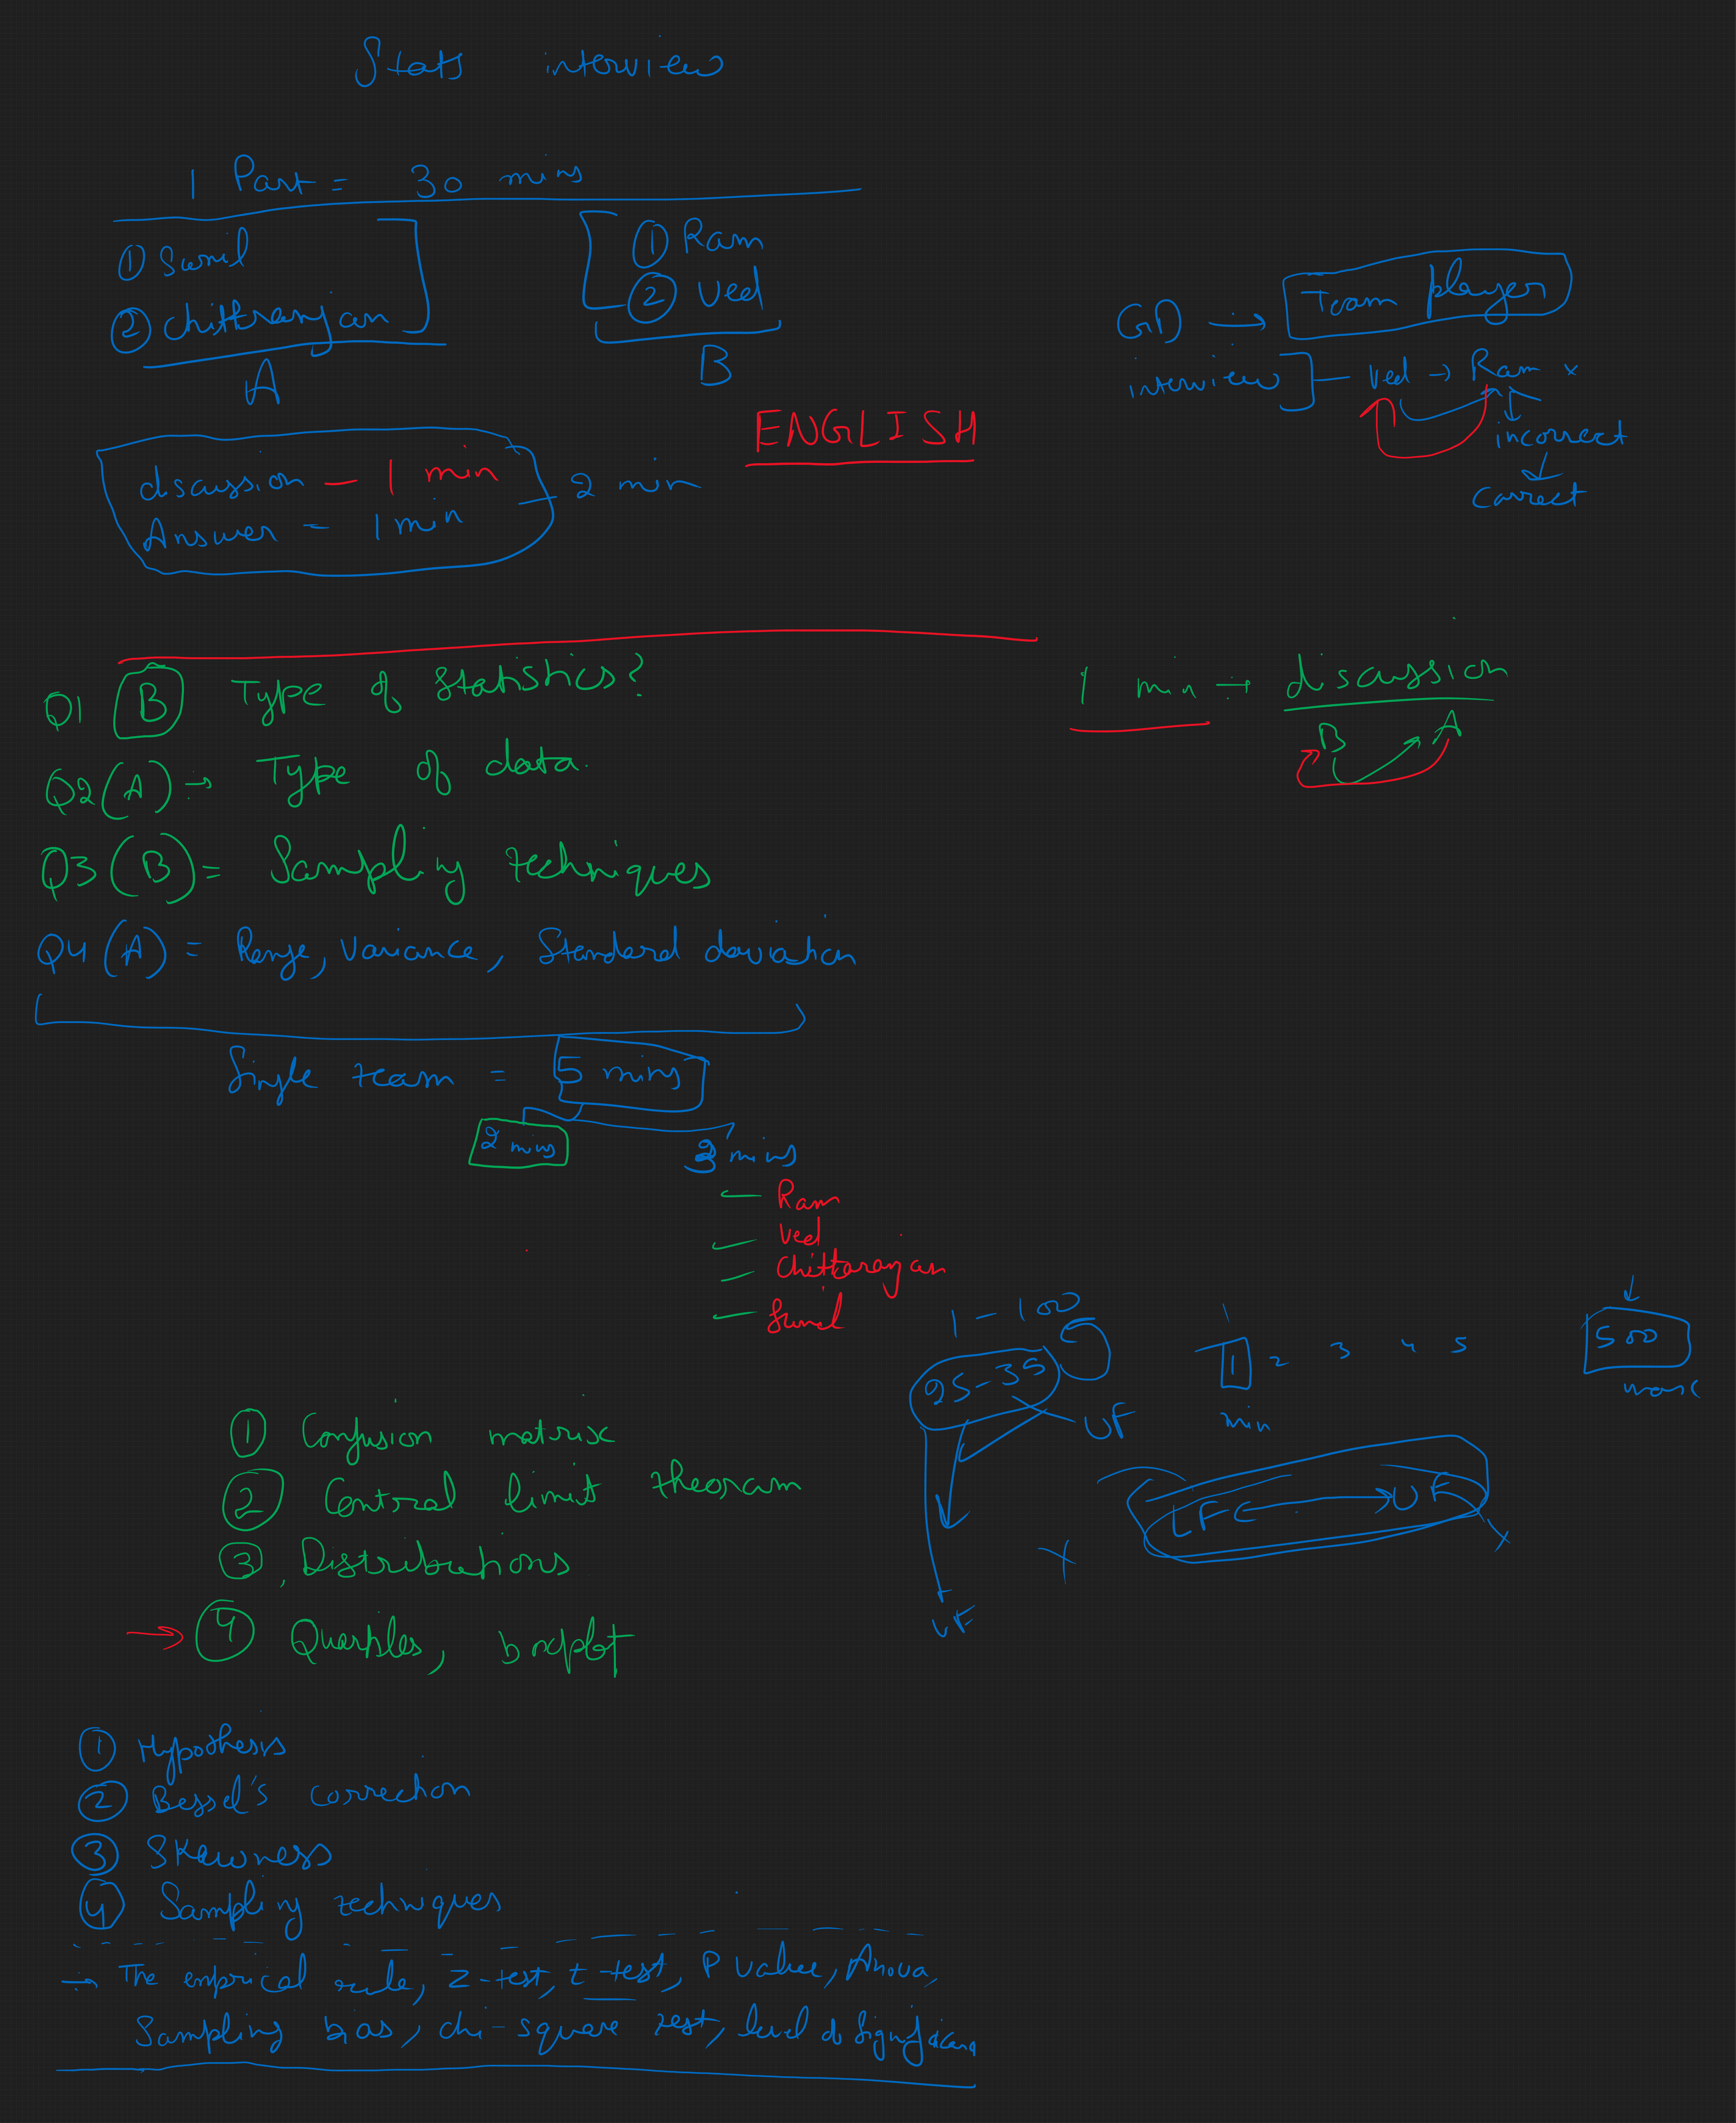 Stats interview
1 Part = 30 mins
① Sunil
② Chittaranjan
A
① Ram
② Ved
B
GD → Team player
interview ] - Ved → Ram x
incorrect
correct
ENGLISH
discussion - 1 min
Answer - 1 min
2 min
Q1 B Type of statistics?
Q2 (A) → Type of data.
Q3 (B) = Sampling techniques
Q4 (A) = Range, Variance, Standard deviation
1 min → discussion
B A
Single team = 5 mins
2 mins 3 mins
- Ram
- Ved
- Chittaranjan
- Sunil
1 - 100
25-35
UF
UF
1 2 3 4 5 500
min
① Confusion matrix
② Central limit theorem
③ Distributions
→ ④ Quartiles, boxplot
① Hypothesis
② Bessel's correction
③ Skewness
④ Sampling techniques
→ The emprical rule, Z-test, t-test, P value, Anova,
Sampling bias, chi-square test, level of